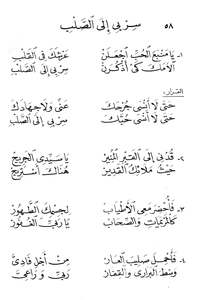 ٥٨ سِر بي إلى الصَّلْبِ
١- يَا مَنْبَعَ الحُبِّ اجْعَلَنْ عَرْشَكَ فِي القَلْبِ
آلَامَكَ كَيْ أَذْكُرَنْ سِرْ بِي إِلَى الصَّلْبِ
القرار:
حَتَّى لَا أَنْسَى جُرْحَكَ عَنِّي وَلَا جِهَادَكَ
حَتَّى لَا أَنْسَى حُبَّكَ سِرْ بِي إِلَى الصَّلْبِ
٢- قُدْنِي إِلَى القَبْرِ المُنِيرْ يَا سَيِّدِي الجَرِيحْ
حَيْثُ مَلَائِكُ القَدِيرْ هُنَاكَ أَسْتَرِيحْ
٣- فَأُحْضِرَ مَعِي الأَطْيَابْ لِجِسْمِكَ الطَّهُورْ
كَالمَرْيَمَاتِ وَالصِّحَابْ يَا رَفِيقَ
٤- فَأَحْمِلَ صَلِيبَ العَارْ مِنْ أَجْلِ فَادِيَّ
وَسَطَ البَرَارِي وَالقِفَارْ رَبِّي وَرَاعِيَّ